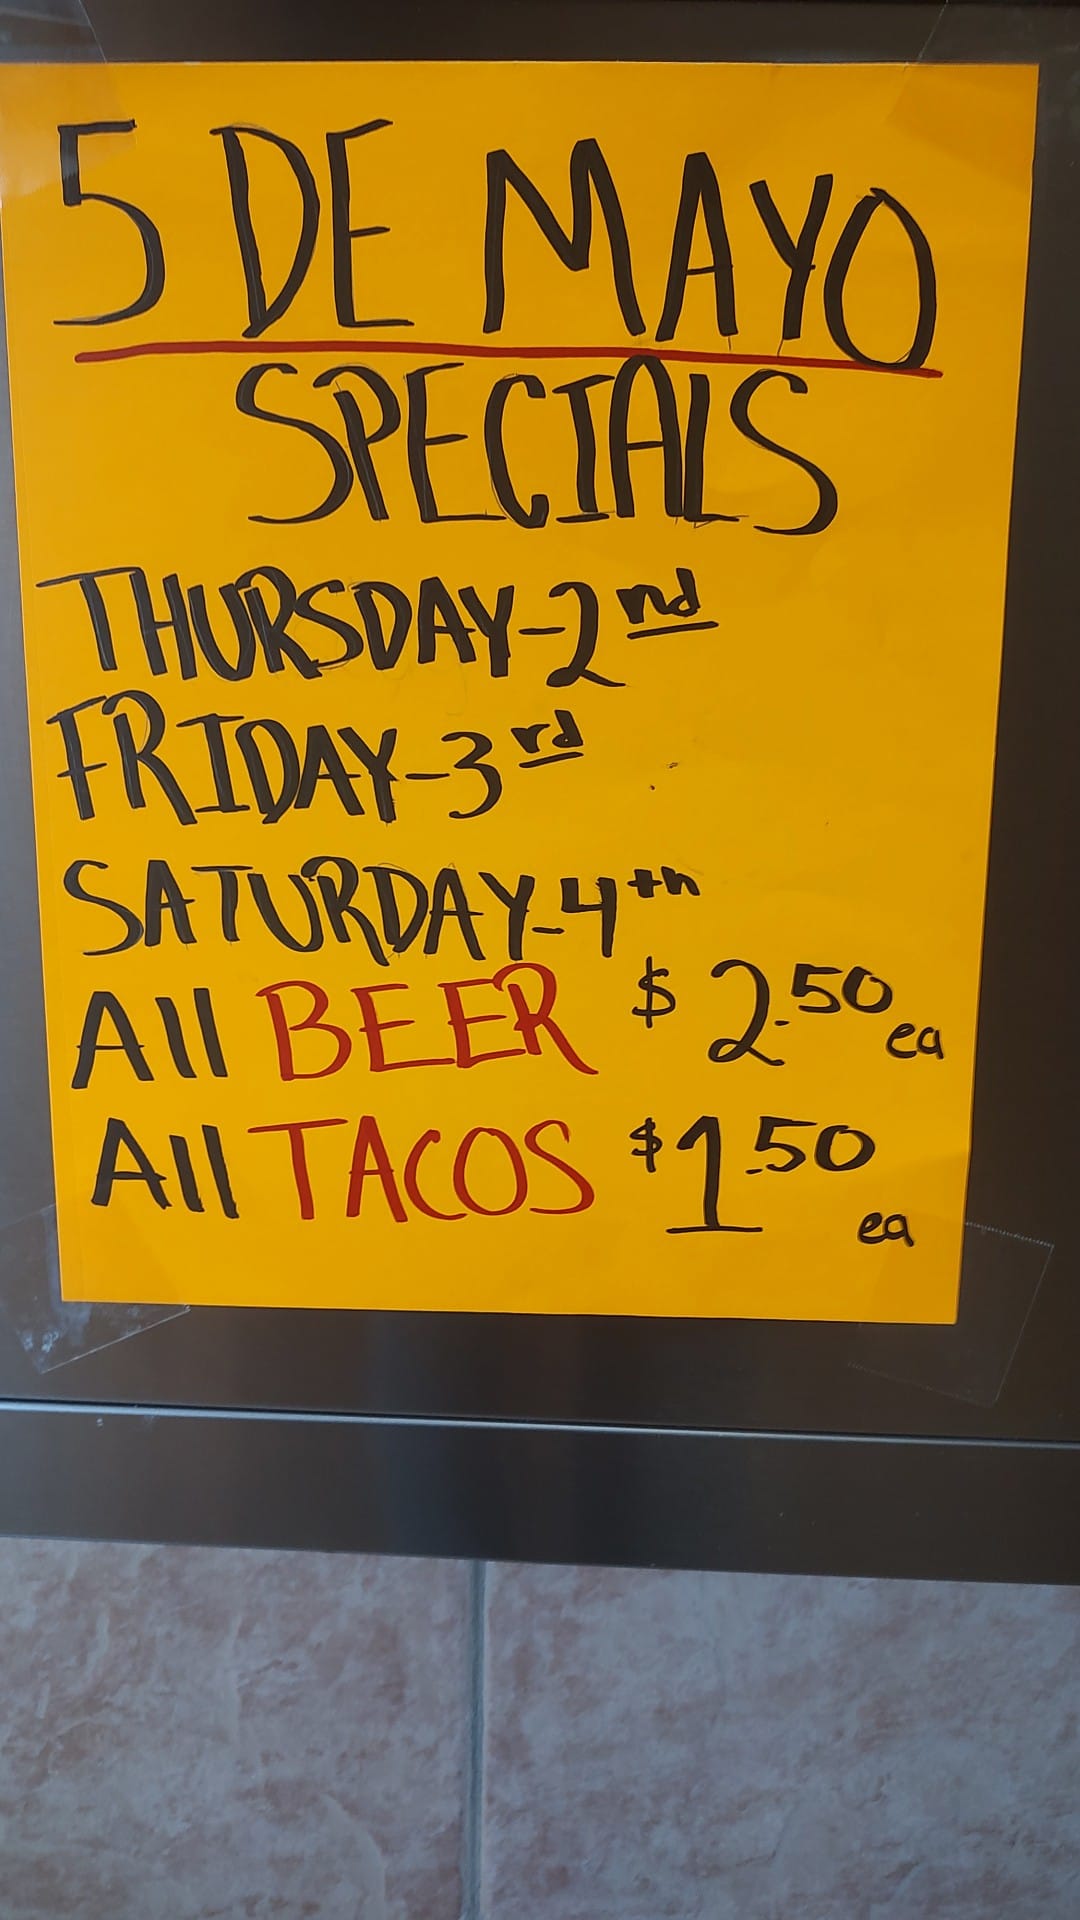 5 DE MAYO
SPECIALS
THURSDAY-2nd
FRIDAY-3rd
SATURDAY-4th
All BEER $2.50 ea
All TACOS $1.50 ea